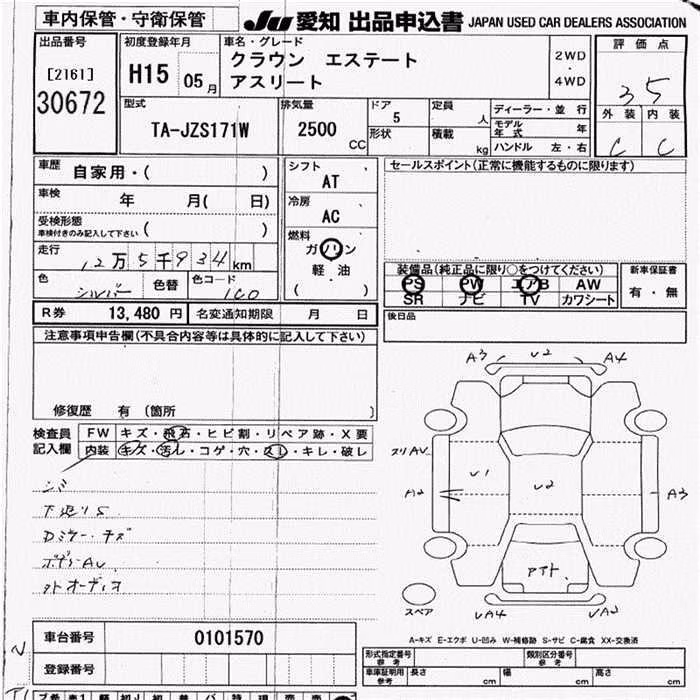 車内保管・守衛保管
JU 愛知 出品申込書 JAPAN USED CAR DEALERS ASSOCIATION
出品番号
[2161]
30672
初度登録年月
H15 05月
車名・グレード
クラウン エステート
アスリート
2WD
・
4WD
評価点
3.5
外装 内装
C C
型式
TA-JZS171W
排気量
2500 CC
ドア
5
形状
定員
人
積載
kg
ディーラー・並行
モデル年式 年
ハンドル 左・右
車歴 自家用・( )
車検 年 月( 日)
受検形態
車検付きのみ記入して下さい ( )
走行
12万5千934km
色
シルバー
色替
色コード
1C0
シフト
AT
冷房
AC
燃料
ガソリン
軽油
( )
セールスポイント(正常に機能するものに限ります)
装備品(純正品に限り○をつけてください)
PS PW エアB AW
SR ナビ TV カワシート
新車保証書
有・無
R券 13,480円 名変通知期限 月 日
後日品
注意事項申告欄(不具合内容等は具体的に記入して下さい)
修復歴 有 〔箇所 〕
検査員記入欄
FW キズ・飛石・ヒビ割・リペア跡・X要
内装 キズ・汚レ・コゲ・穴・スレ・キレ・破レ
シミ
下廻りS
Dミラー・キズ
ボデーAU
外オーディオ
A3 U2 A4
スリAU
A2
U1
U2
A3
アイト.
スペア
UA4 UA2
A-キズ E-エクボ U-凹み W-補修跡 S-サビ C-腐食 XX-交換済
車台番号 0101570
登録番号
型式指定番号 参考
類別区分番号 参考
車庫証明用 参考 長さ cm 幅 cm 高さ cm